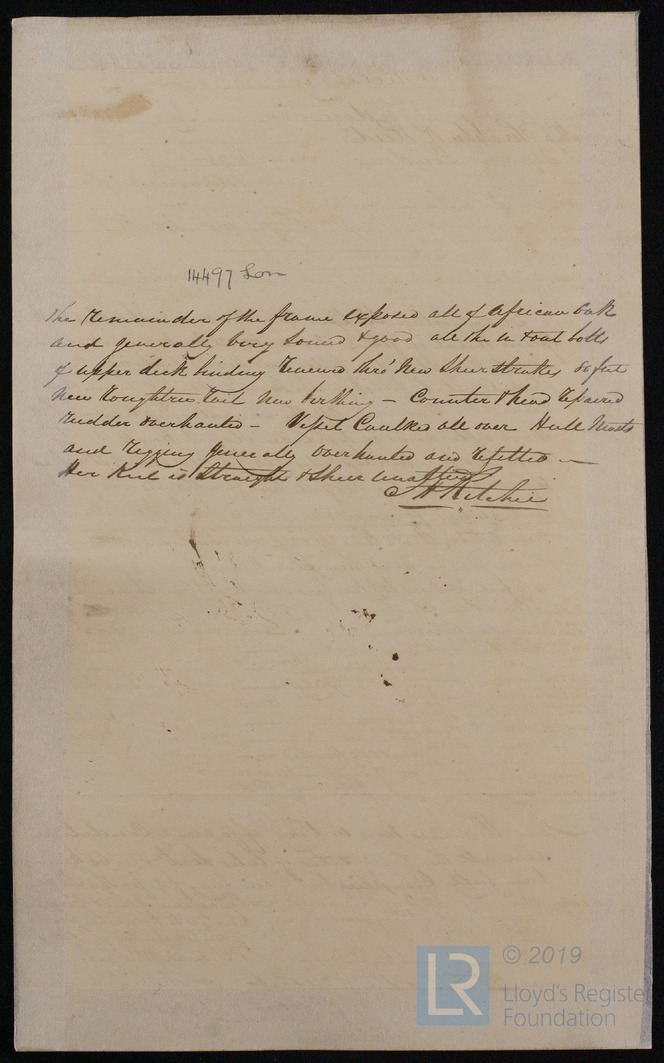 14497 Lon
The remainder of the frame exposed all of African Oak
and generally very sound & good all the in & out bolts
of upper deck binding renewed thro' New Sheerstrakes
New Roughtree Rail New birthing — Counter & head repaired
rudder overhauled — Vessel Caulked all over Hull Masts
and rigging generally overhauled and refitted —
Her Keel is Straight & Sheer
Ritchie
LR © 2019
Lloyd's Register
Foundation